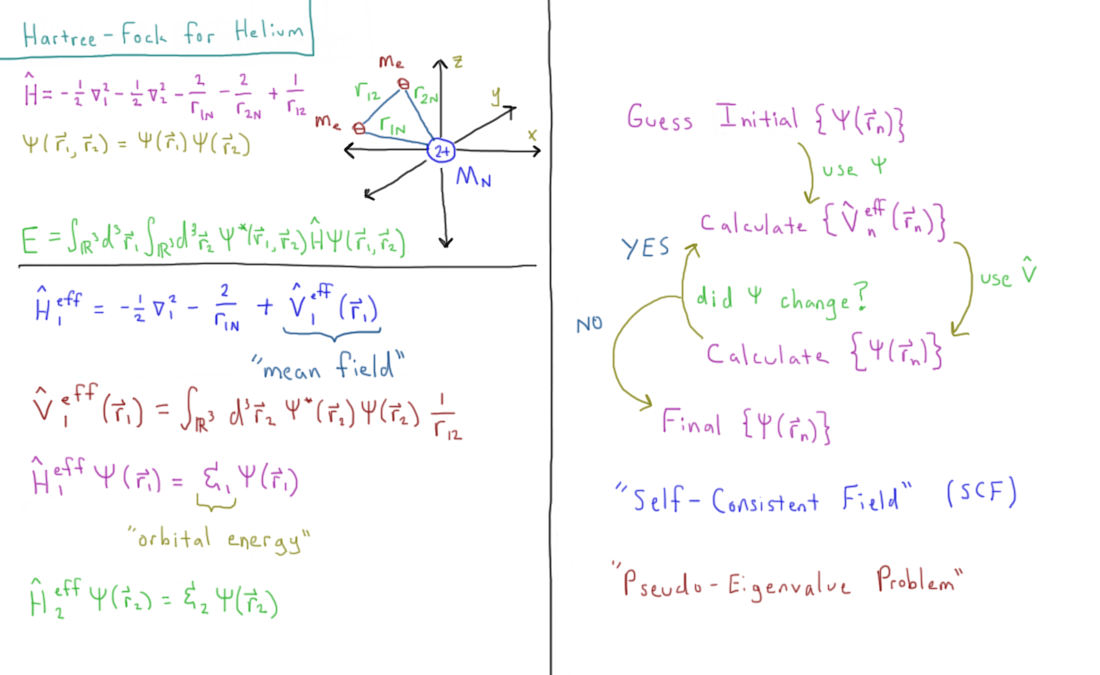 Hartree-Fock for Helium
Ĥ = -½ ∇₁² - ½ ∇₂² - 2/r₁N - 2/r₂N + 1/r₁₂
Ψ(r⃗₁, r⃗₂) = Ψ(r⃗₁) Ψ(r⃗₂)
mₑ
mₑ
r₁₂
r₂N
r₁N
z
y
x
2+
M_N
E = ∫_ℝ³ d³r⃗₁ ∫_ℝ³ d³r⃗₂ Ψ*(r⃗₁, r⃗₂) Ĥ Ψ(r⃗₁, r⃗₂)
Ĥ₁^eff = -½ ∇₁² - 2/r₁N + V̂₁^eff (r⃗₁)
"mean field"
V̂₁^eff (r⃗₁) = ∫_ℝ³ d³r⃗₂ Ψ*(r⃗₂) Ψ(r⃗₂) 1/r₁₂
Ĥ₁^eff Ψ(r⃗₁) = ℰ₁ Ψ(r⃗₁)
"orbital energy"
Ĥ₂^eff Ψ(r⃗₂) = ℰ₂ Ψ(r⃗₂)
Guess Initial {Ψ(r⃗ₙ)}
use Ψ
Calculate {V̂ₙ^eff (r⃗ₙ)}
YES
use V̂
did Ψ change?
NO
Calculate {Ψ(r⃗ₙ)}
Final {Ψ(r⃗ₙ)}
"Self-Consistent Field" (SCF)
"Pseudo-Eigenvalue Problem"